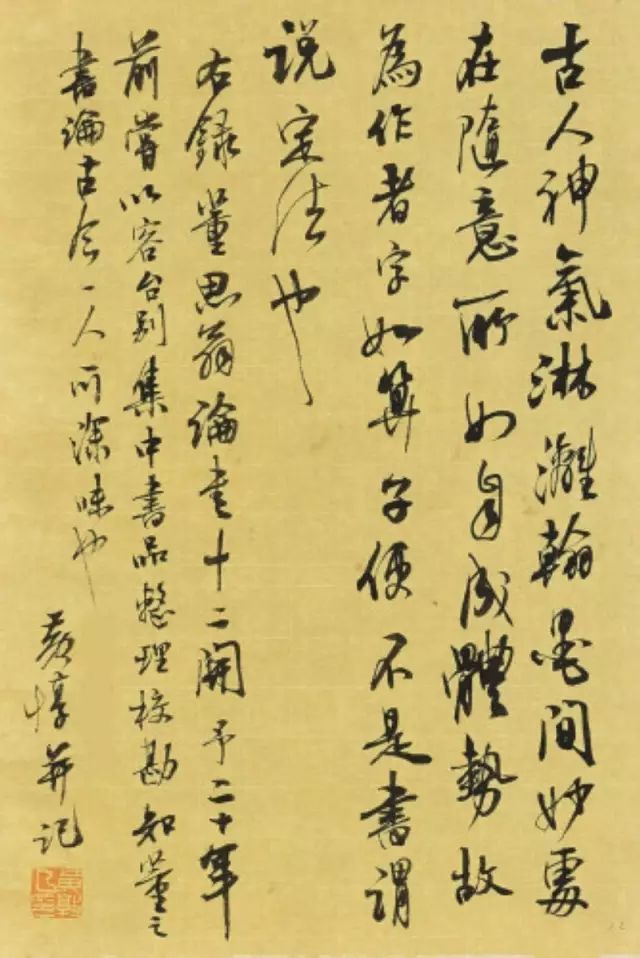 古人神氣淋漓翰墨間妙處
在隨意所如自成體勢故
為作者字如算子便不是書謂
説定法也
右錄董思翁論書十二開予二十年
前嘗以容台别集中書品整理校勘知董之
書論古今一人所深味也
黄惇并記